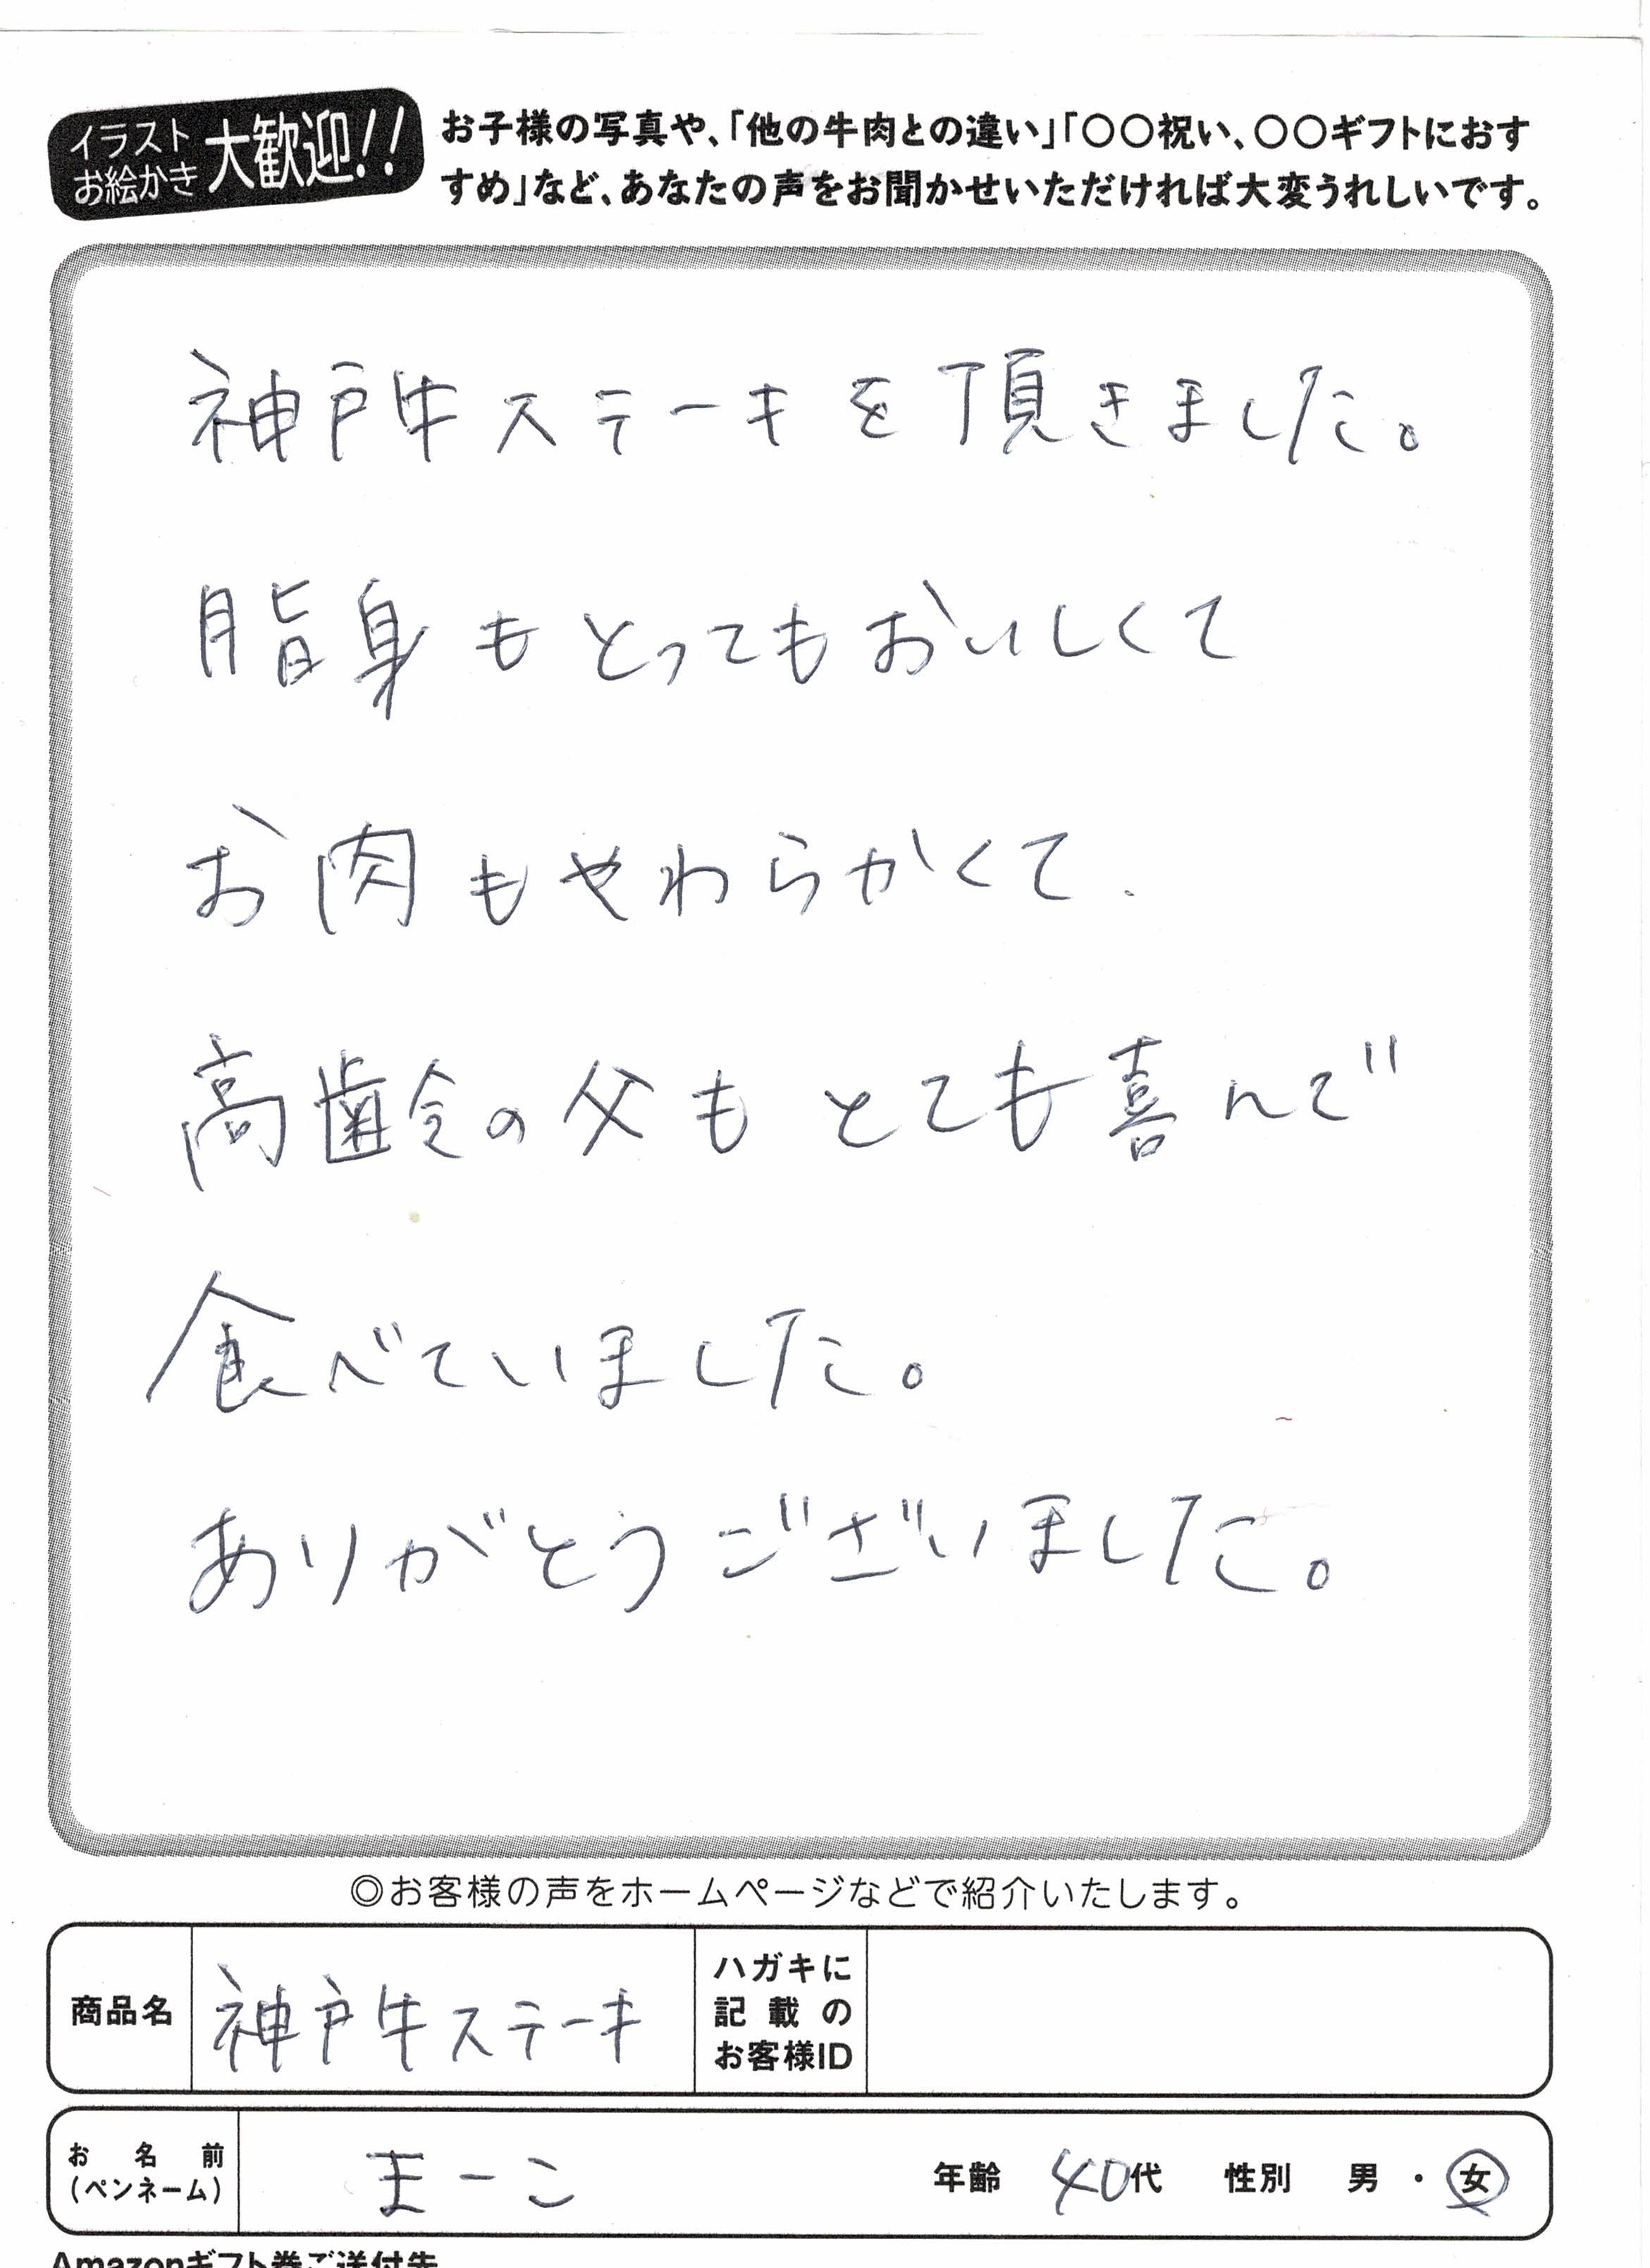 イラスト
お絵かき
大歓迎!!
お子様の写真や、「他の牛肉との違い」「〇〇祝い、〇〇ギフトにおす
すめ」など、あなたの声をお聞かせいただければ大変うれしいです。
神戸牛ステーキを頂きました。
脂身もとってもおいしくて
お肉もやわらかくて、
高齢の父もとても喜んで
食べていました。
ありがとうございました。
◎お客様の声をホームページなどで紹介いたします。
商品名
神戸牛ステーキ
ハガキに
記載の
お客様ID
お名前
(ペンネーム)
まーこ
年齢 40代 性別 男・女
Amazonギフト券ご送付先